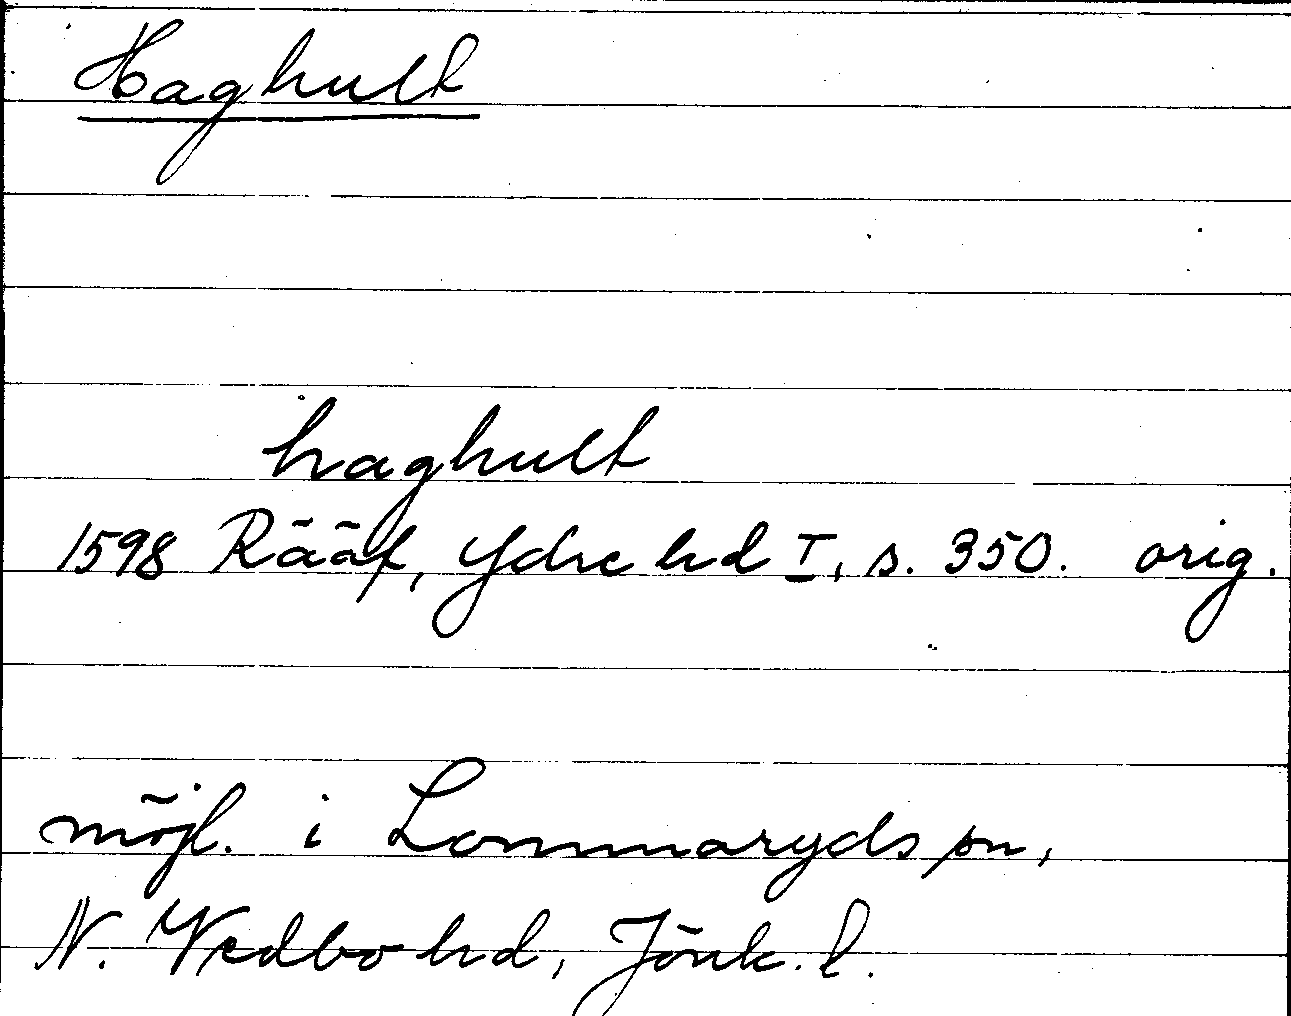 Haghult
haghult
1598 Rääf, Ydre hd I, s. 350. orig.
möjl. i Lommaryds sn,
N. Vedbo hd, Jönk. l.